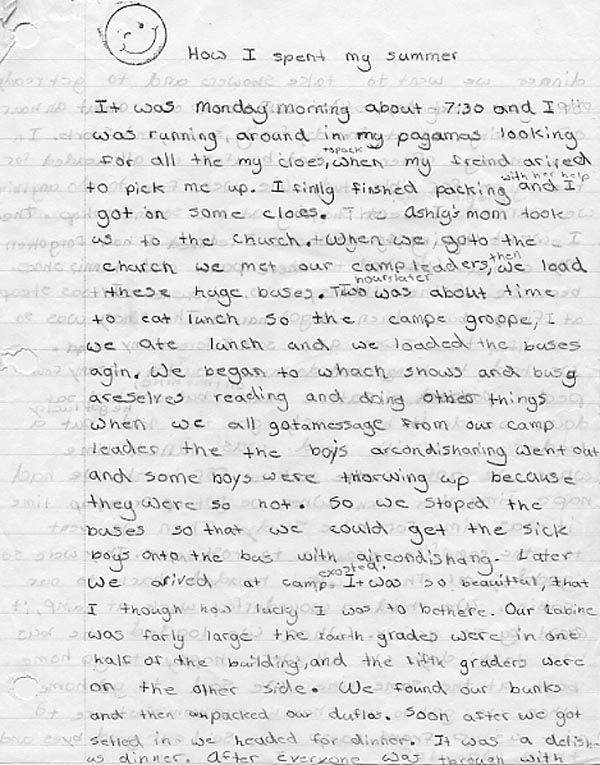 How I spent my summer
It was Monday morning about 7:30 and I
was running around in my pagamas looking
to pack
for all the my cloes, when my freind arived
with her help
to pick me up. I finlly finshed packing and I
got on some cloes. The Ashly's mom took
us to the church. When we goto the
then
church we met our camp leaders, we load
hours later
these huge buses. Two was about time
to eat lunch so the campe groppe, I
we ate lunch and we loaded the buses
agin. We began to whach shows and busy
areselves reading and doing other things
when we all gotamessage from our camp
leader the the boys arcondishaning went out
and some boys were thorwing up because
they were so hot. So we stoped the
buses so that we could get the sick
boys onto the bus with aircondishang. Later
exosted.
we arived at camp. It was so beauitful, that
I though how lucky I was to bethere. Our cabine
was farly large the fourth grades were in one
half of the building, and the fifth graders were
on the other side. We found our bunks
and then unpacked our duflas. Soon after we got
setled in we headed for dinner. It was a delish-
us dinner. After everyone was through with